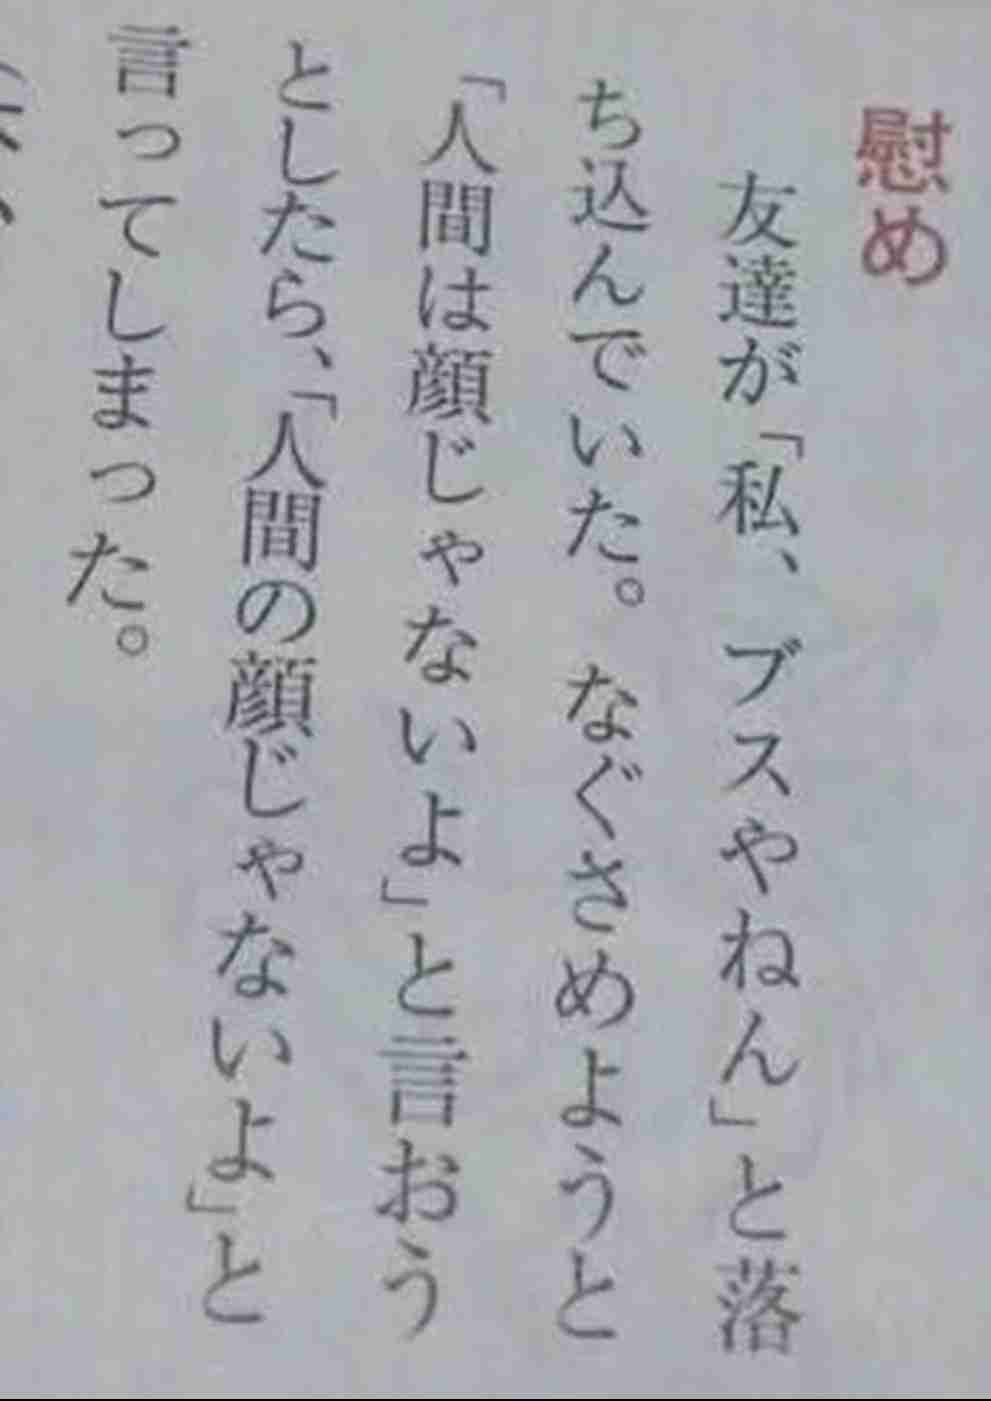 慰め
友達が「私、ブスやねん」と落
ち込んでいた。なぐさめようと
「人間は顔じゃないよ」と言おう
としたら、「人間の顔じゃないよ」と
言ってしまった。